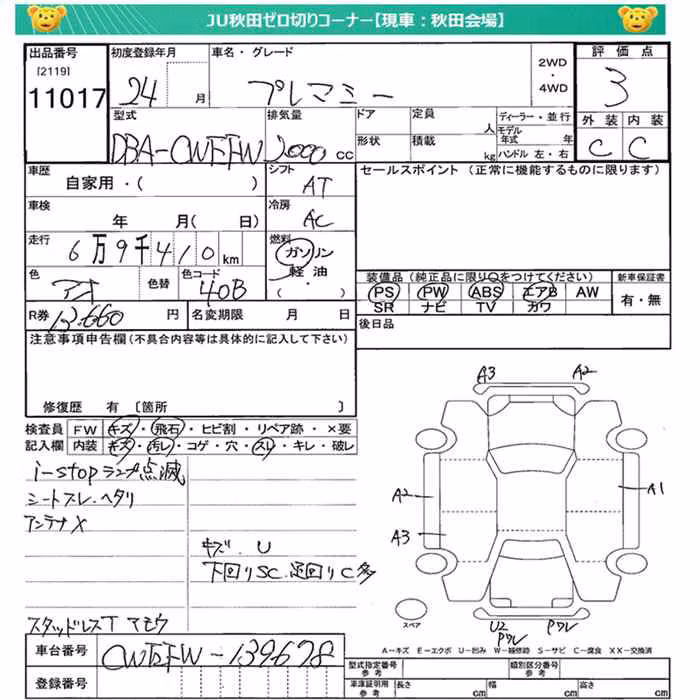 JU秋田ゼロ切りコーナー【現車:秋田会場】
出品番号 初度登録年月 車名・グレード 2WD・4WD 評価点
[2119]
11017 24 月 プレマシー 3
型式 排気量 ドア 定員 人 ディーラー・並行 外装 内装
DBA-CWEFW 2000 cc 形状 積載 kg モデル年式 年 ハンドル 左・右 C C
車歴 シフト セールスポイント (正常に機能するものに限ります)
自家用・( ) AT
車検 冷房
年 月( 日) AC
走行 燃料
6万9千410km ガソリン
軽油
・
( )
色 アオ 色替 色コード 40B
装備品(純正品に限り○をつけてください) 新車保証書
PS PW ABS エアB AW 有・無
SR ナビ TV カワ
R券 13,660 円 名変期限 月 日 後日品
注意事項申告欄(不具合内容等は具体的に記入して下さい)
修復歴 有 [箇所 ]
検査員 FW キズ・飛石・ヒビ割・リペア跡・×要
記入欄 内装 キズ・汚レ・コゲ・穴・スレ・キレ・破レ
i-stopランプ点滅
シートスレ.ヘタリ
アンテナX
キズ.U
下回りSC.足回りC多
スタッドレスT アモウ
A3 A2
A2 A1
A3
U2 PワレPワレ
スペア
A-キズ E-エクボ U-凹み W-補修跡 S-サビ C-腐食 XX-交換済
車台番号 CWEFW-139678
登録番号
型式指定番号 参考 類別区分番号 参考
車庫証明用 参考 長さ cm 幅 cm 高さ cm